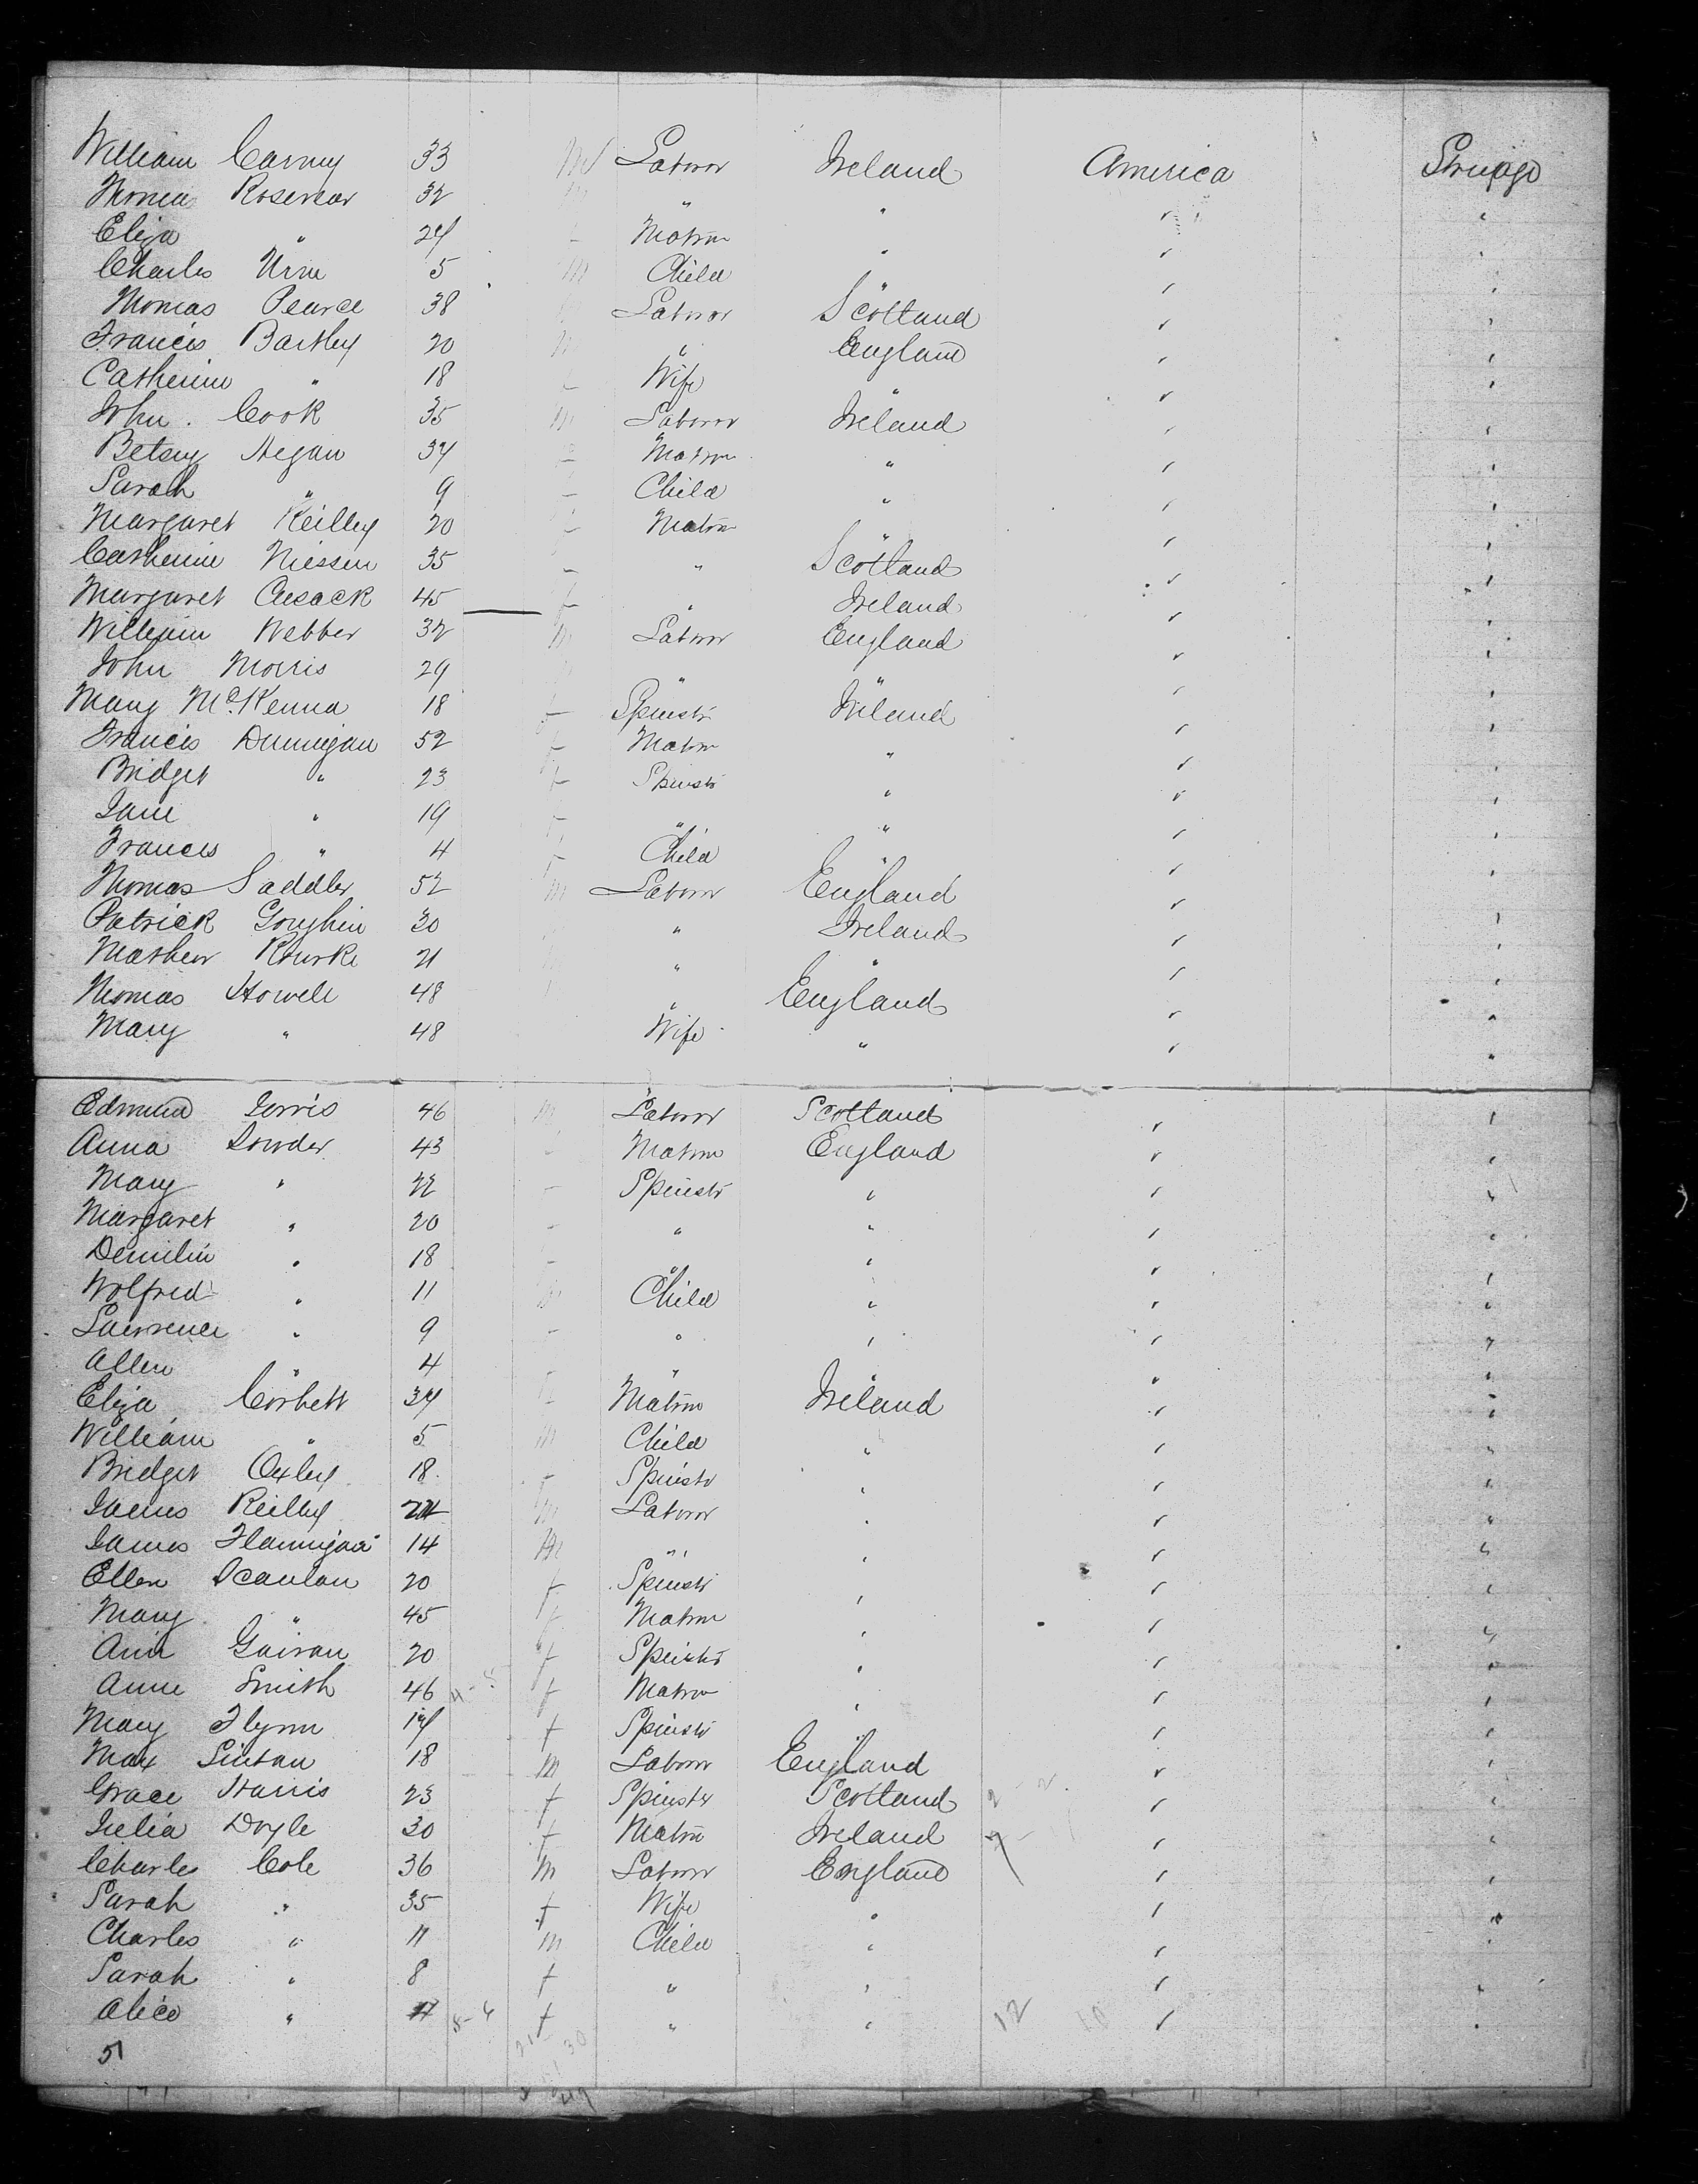 William Carney 33 M Laborer Ireland America Steerage
Thomas 32 m " " " "
Eliza " 24 f Matron " " "
Charles 5 m Child " " "
Thomas Pearce 38 Laborer Scotland " "
Francis Bartley 20 m " England " "
Catherine " 18 f Wife " " "
John Cook 35 m Laborer Ireland " "
Betsey Hegan 34 f Matron " " "
Sarah " 9 f Child " " "
Margaret Reilley 20 f Matron " " "
Catherine Niessen 35 f " Scotland " "
Margaret Cusack 45 f " Ireland " "
William Webber 32 m Laborer England " "
John Morris 29 m " " " "
Mary McKenna 18 f Spinstr Ireland " "
Francis Dunnigan 52 f Matron " " "
Bridget " 23 f Spinstr " " "
Jane " 19 f " " " "
Frances " 4 f Child " " "
Thomas Saddler 52 m Laborer England " "
Patrick 30 " Ireland " "
Mathew Rourke 21 " " " "
Thomas Howell 48 " England " "
Mary " 48 Wife " " "
Edmund 46 m Laborer Scotland " "
Anna Lowder 43 f Matron England " "
Mary " 22 f Spinstr " " "
Margaret " 20 f " " " "
" 18 f " " " "
Wolfred " 11 m Child " " "
Lawrence " 9 " " " "
Allen " 4 " " " "
Eliza Corbett 34 f Matron Ireland " "
William " 5 m Child " " "
Bridget Oxley 18 f Spinstr " " "
James Reilley m Laborer " " "
James Flannigan 14 m " " " "
Ellen Scanlan 20 f Spinstr " " "
Mary " 45 f Matron " " "
Ann 20 f Spinstr " " "
Anne Smith 46 f Matron " " "
Mary Flynn f Spinstr " " "
Max Sintan 18 m Laborer England " "
Grace Harris 23 f Spinster Scotland " "
Julia Doyle 30 f Matron Ireland " "
Charles Cole 36 m Laborer England " "
Sarah " 35 f Wife " " "
Charles " 11 m Child " " "
Sarah " 8 f " " " "
Alice " f " " " "
51